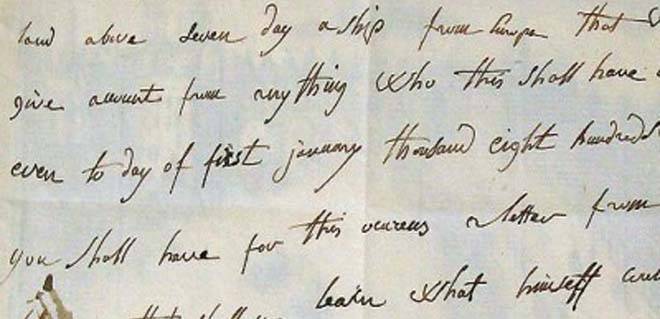 land above seven day a ship from Europe that
give account from anything who this shall have
even to day of first january thousand eight hundreds
you shall have for this a letter from
learn what himself